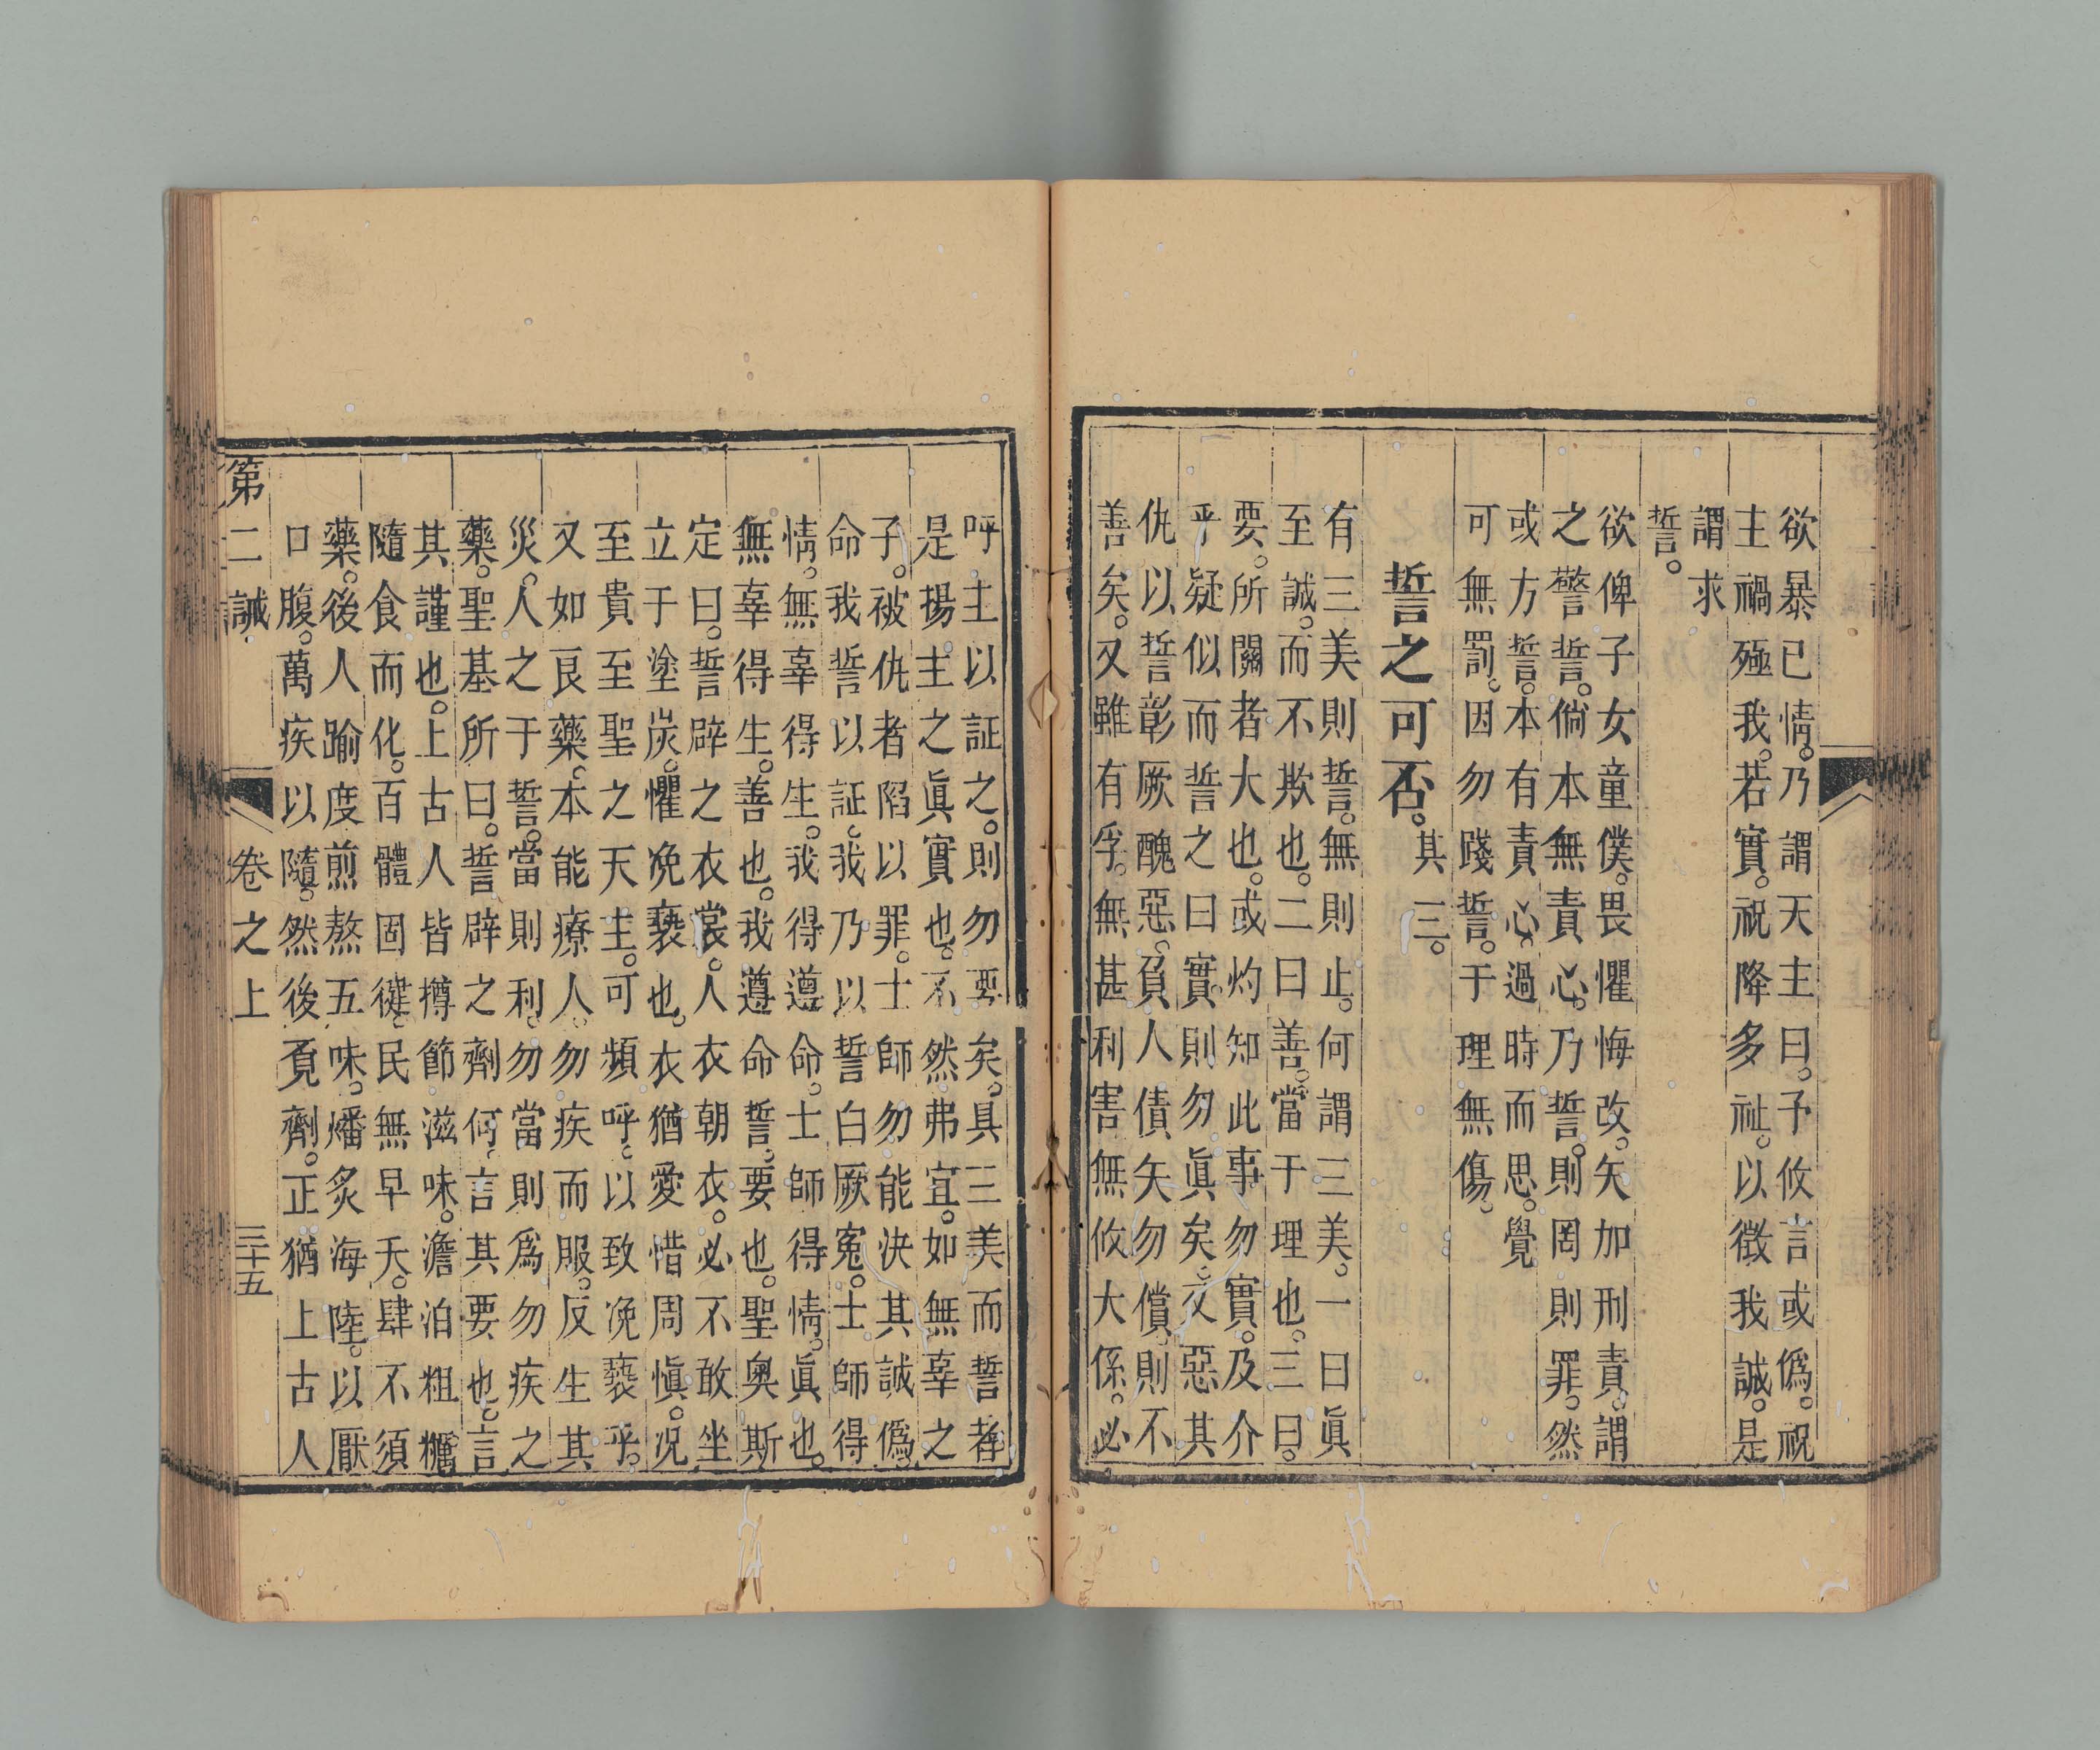 欲暴已情。乃謂天主曰。予攸言或僞。祝
主禍殛我。若實。祝降多祉。以徵我誠。是
謂求
誓。
欲俾子女童僕。畏懼悔改。矢加刑責。謂
之警誓。倘本無責心。乃誓。則罔則罪。然
或方誓。本有責心。過時而思。覺
可無罰。因勿踐誓。于理無傷。
誓之可否。其三。
有三美則誓。無則止。何謂三美。一曰眞
至誠。而不欺也。二曰善。當于理也。三曰。
要。所關者大也。或灼知此事勿實。及介
乎疑似而誓之曰實。則勿眞矣。又惡其
仇以誓彰厥醜惡。負人債矢勿償。則不
善矣。又雖有孚。無甚利害無攸大係。必
呼主以証之。則勿要矣。具三美而誓者
是揚主之眞實也。不然弗宜。如無辜之
子。被仇者陷以罪。士師勿能決其誠僞。
命我誓以証。我乃以誓白厥冤。士師得
情。無辜得生。我得遵命。士師得情。眞也。
無辜得生。善也。我遵命誓。要也。聖奧斯
定曰。誓辟之衣裳。人衣朝衣。必不敢坐
立于塗炭。懼浼褻也。衣猶愛惜周愼。况
至貴至聖之天主。可頻呼。以致浼褻乎。
又如良藥。本能療人。勿疾而服。反生其
災。人之于誓。當則利。勿當則爲勿疾之
藥。聖基所曰。誓辟之劑何。言其要也。言
其謹也。上古人皆撙節滋味。澹泊粗糲
隨食而化。百體固健。民無早夭。肆不須
藥。後人踰度煎熬五味。燔炙海陸。以厭
口腹。萬疾以隨。然後覓劑。正猶上古人
第二誡 卷之上 三十五